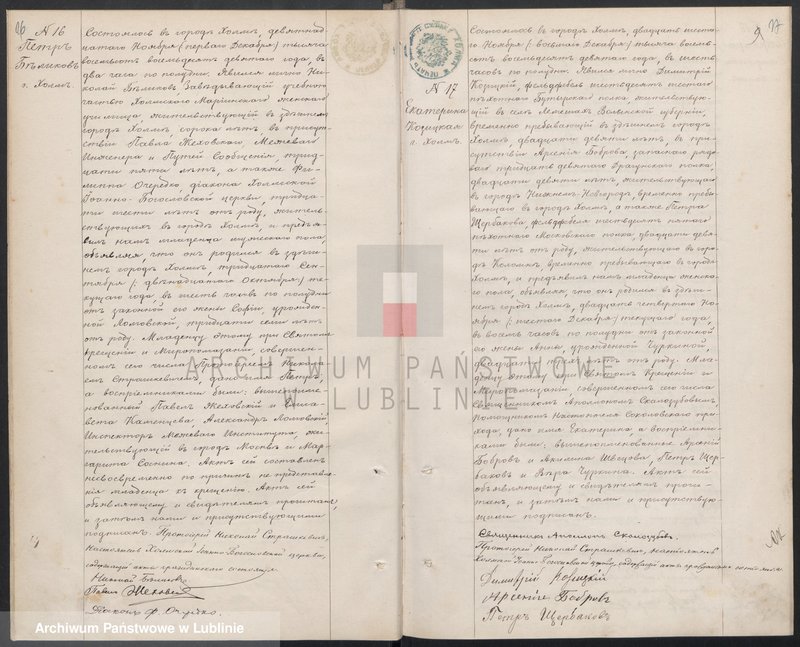 96
N 16
Петръ
Бѣликовъ
г. Холмъ.
Состоялось въ городѣ Холмѣ, девятнад-
цатаго Ноября (перваго Декабря) тысяча
восемьсотъ восемьдесятъ девятаго года, въ
два часа по полудни. Явился лично Ни-
колай Бѣликовъ, Завѣдывающій учебною
частью Холмскаго Маріинскаго женскаго
училища, жительствующій въ здѣшнемъ
городѣ Холмѣ, сорока лѣтъ, въ присут-
ствіи Павла Жеховскаго, Межеваго
Инженера и Путей Сообщенія, трид-
цати пяти лѣтъ, а также Фи-
липпа Очеретко, діакона Холмской
Іоанно-Богословской церкви, тридца-
ти шести лѣтъ отъ роду, житель-
ствующихъ въ городѣ Холмѣ, и предъя-
вилъ намъ младенца мужескаго пола,
объявляя, что онъ родился въ здѣш-
немъ городѣ Холмѣ, тридцатаго Сен-
тября (двѣнадцатаго Октября) те-
кущаго года, въ шесть часовъ по полудни
отъ законной его жены Софіи урожден-
ной Ломовской, тридцати семи лѣтъ
отъ роду. Младенцу этому при Святомъ
Крещеніи и Миропомазаніи, совершен-
номъ сего числа Протоіереемъ Никола-
емъ Страшкевичемъ, дано имя Петръ,
а воспріемниками были: вышепоиме-
нованный Павелъ Жеховскій и Елиса-
вета Каменцева, Александръ Ломовскій
Инспекторъ Межеваго Института, жи-
тельствующій въ городѣ Москвѣ и Мар-
гарита Соснина. Актъ сей составленъ
несвоевременно по причинѣ не представле-
нія младенца къ крещенію. Актъ сей
объявляющему и свидѣтелямъ прочитанъ,
и затѣмъ нами и присутствующими
подписанъ. Протоіерей Николай Страшкевичъ,
Настоятель Холмской Іоанно-Богословской церкви,
содержащій акты гражданскаго состоянія.
Николай Бѣликовъ
Павелъ Жеховскій
Діаконъ Ф. Очеретко.
97
N 17
Екатерина
Козицкая
г. Холмъ.
Состоялось въ городѣ Холмѣ, двадцать шеста-
го Ноября (восьмаго Декабря) тысяча восемь-
сотъ восемьдесятъ девятаго года, въ шесть
часовъ по полудни. Явился лично Димитрій
Козицкій, фельдфебель шестьдесятъ шестаго
пѣхотнаго Бутырскаго полка, жительствую-
щій въ селѣ Лемешахъ Волынской губерніи,
временно пребывающій въ здѣшнемъ городѣ
Холмѣ, двадцати девяти лѣтъ, въ при-
сутствіи Арсенія Боброва, запаснаго рядо-
ваго тридцать девятаго Драгунскаго полка,
двадцати девяти лѣтъ, жительствующаго
въ городѣ Нижнемъ-Новгородѣ, временно пребы-
вающаго въ городѣ Холмѣ, а также Петра
Щербакова, фельдфебеля шестьдесятъ пятаго
пѣхотнаго Московскаго полка, двадцати девя-
ти лѣтъ отъ роду, жительствующаго въ горо-
дѣ Коломнѣ, временно пребывающаго въ городѣ
Холмѣ, и предъявилъ намъ младенца женска-
го пола, объявляя, что онъ родился въ здѣш-
немъ городѣ Холмѣ, двадцать четвертаго Но-
ября (шестаго Декабря) текущаго года,
въ восемь часовъ по полудни отъ законной
его жены Анны, урожденной Чуркиной,
двадцати лѣтъ отъ роду. Мла-
денцу этому при Святомъ Крещеніи и
Миропомазаніи совершенномъ сего числа
Священникомъ Аполлономъ Сколозубовымъ,
Помощникомъ Настоятеля Соколовскаго при-
хода, дано имя Екатерина а воспріемни-
ками были: вышепоименованные Арсеній
Бобровъ и Акилина Швецова, Петръ Щер-
баковъ и Вѣра Чуркина. Актъ сей
объявляющему и свидѣтелямъ прочи-
танъ, и затѣмъ нами и присутствую-
щими подписанъ.
Священникъ Аполлонъ Сколозубовъ.
Протоіерей Николай Страшкевичъ, настоятель
Холмской Іоанно-Богословской церкви, содержащій акты гражданскаго состоянія.
Димитрій Козицкій
Арсеній Бобровъ
Петръ Щербаковъ
ARCHIWUM PAŃSTWOWE
W LUBLINIE
Archiwum Państwowe w Lublinie